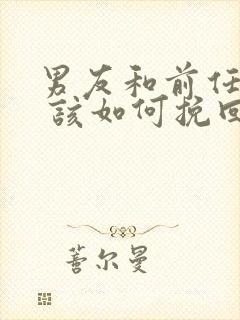 男友和前任
該如何挽回
蓍尔曼